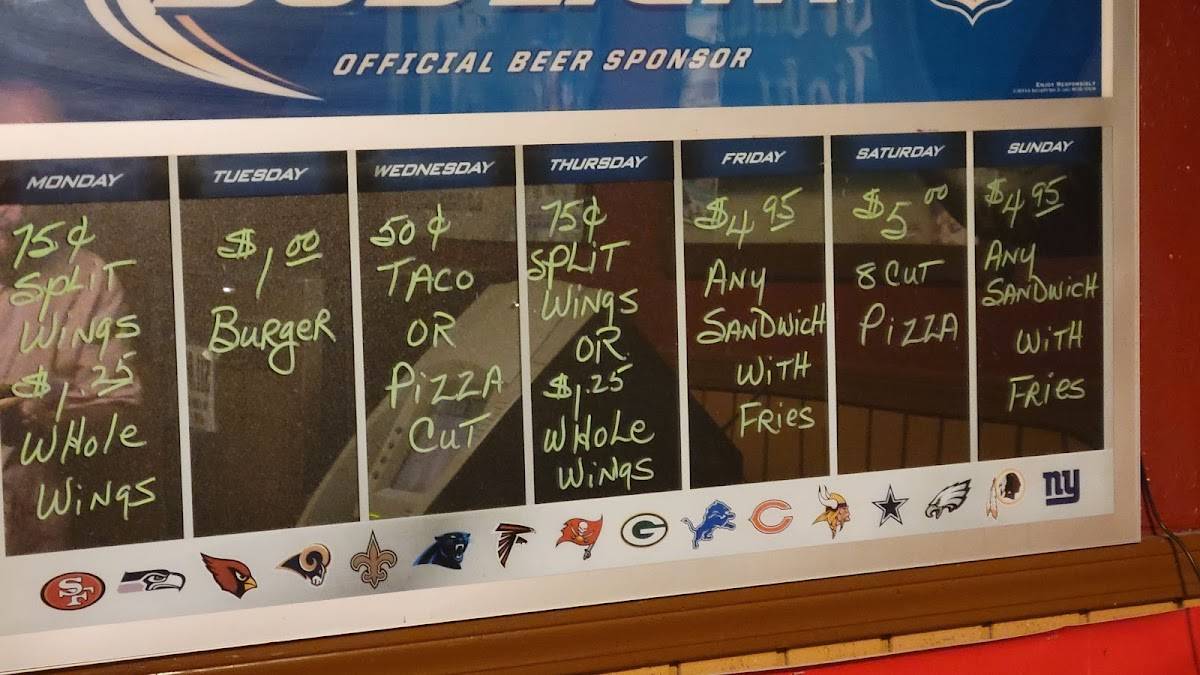 BUD LIGHT
OFFICIAL BEER SPONSOR
ENJOY RESPONSIBLY
MONDAY
75¢
SPLIT
WINGS
$1.25
WHOLE
WINGS
TUESDAY
$1.00
BURGER
WEDNESDAY
50¢
TACO
OR
PIZZA
CUT
THURSDAY
75¢
SPLIT
WINGS
OR
$1.25
WHOLE
WINGS
FRIDAY
$4.95
ANY
SANDWICH
WITH
FRIES
SATURDAY
$5.00
8 CUT
PIZZA
SUNDAY
$4.95
ANY
SANDWICH
WITH
FRIES
SF
G
C
ny